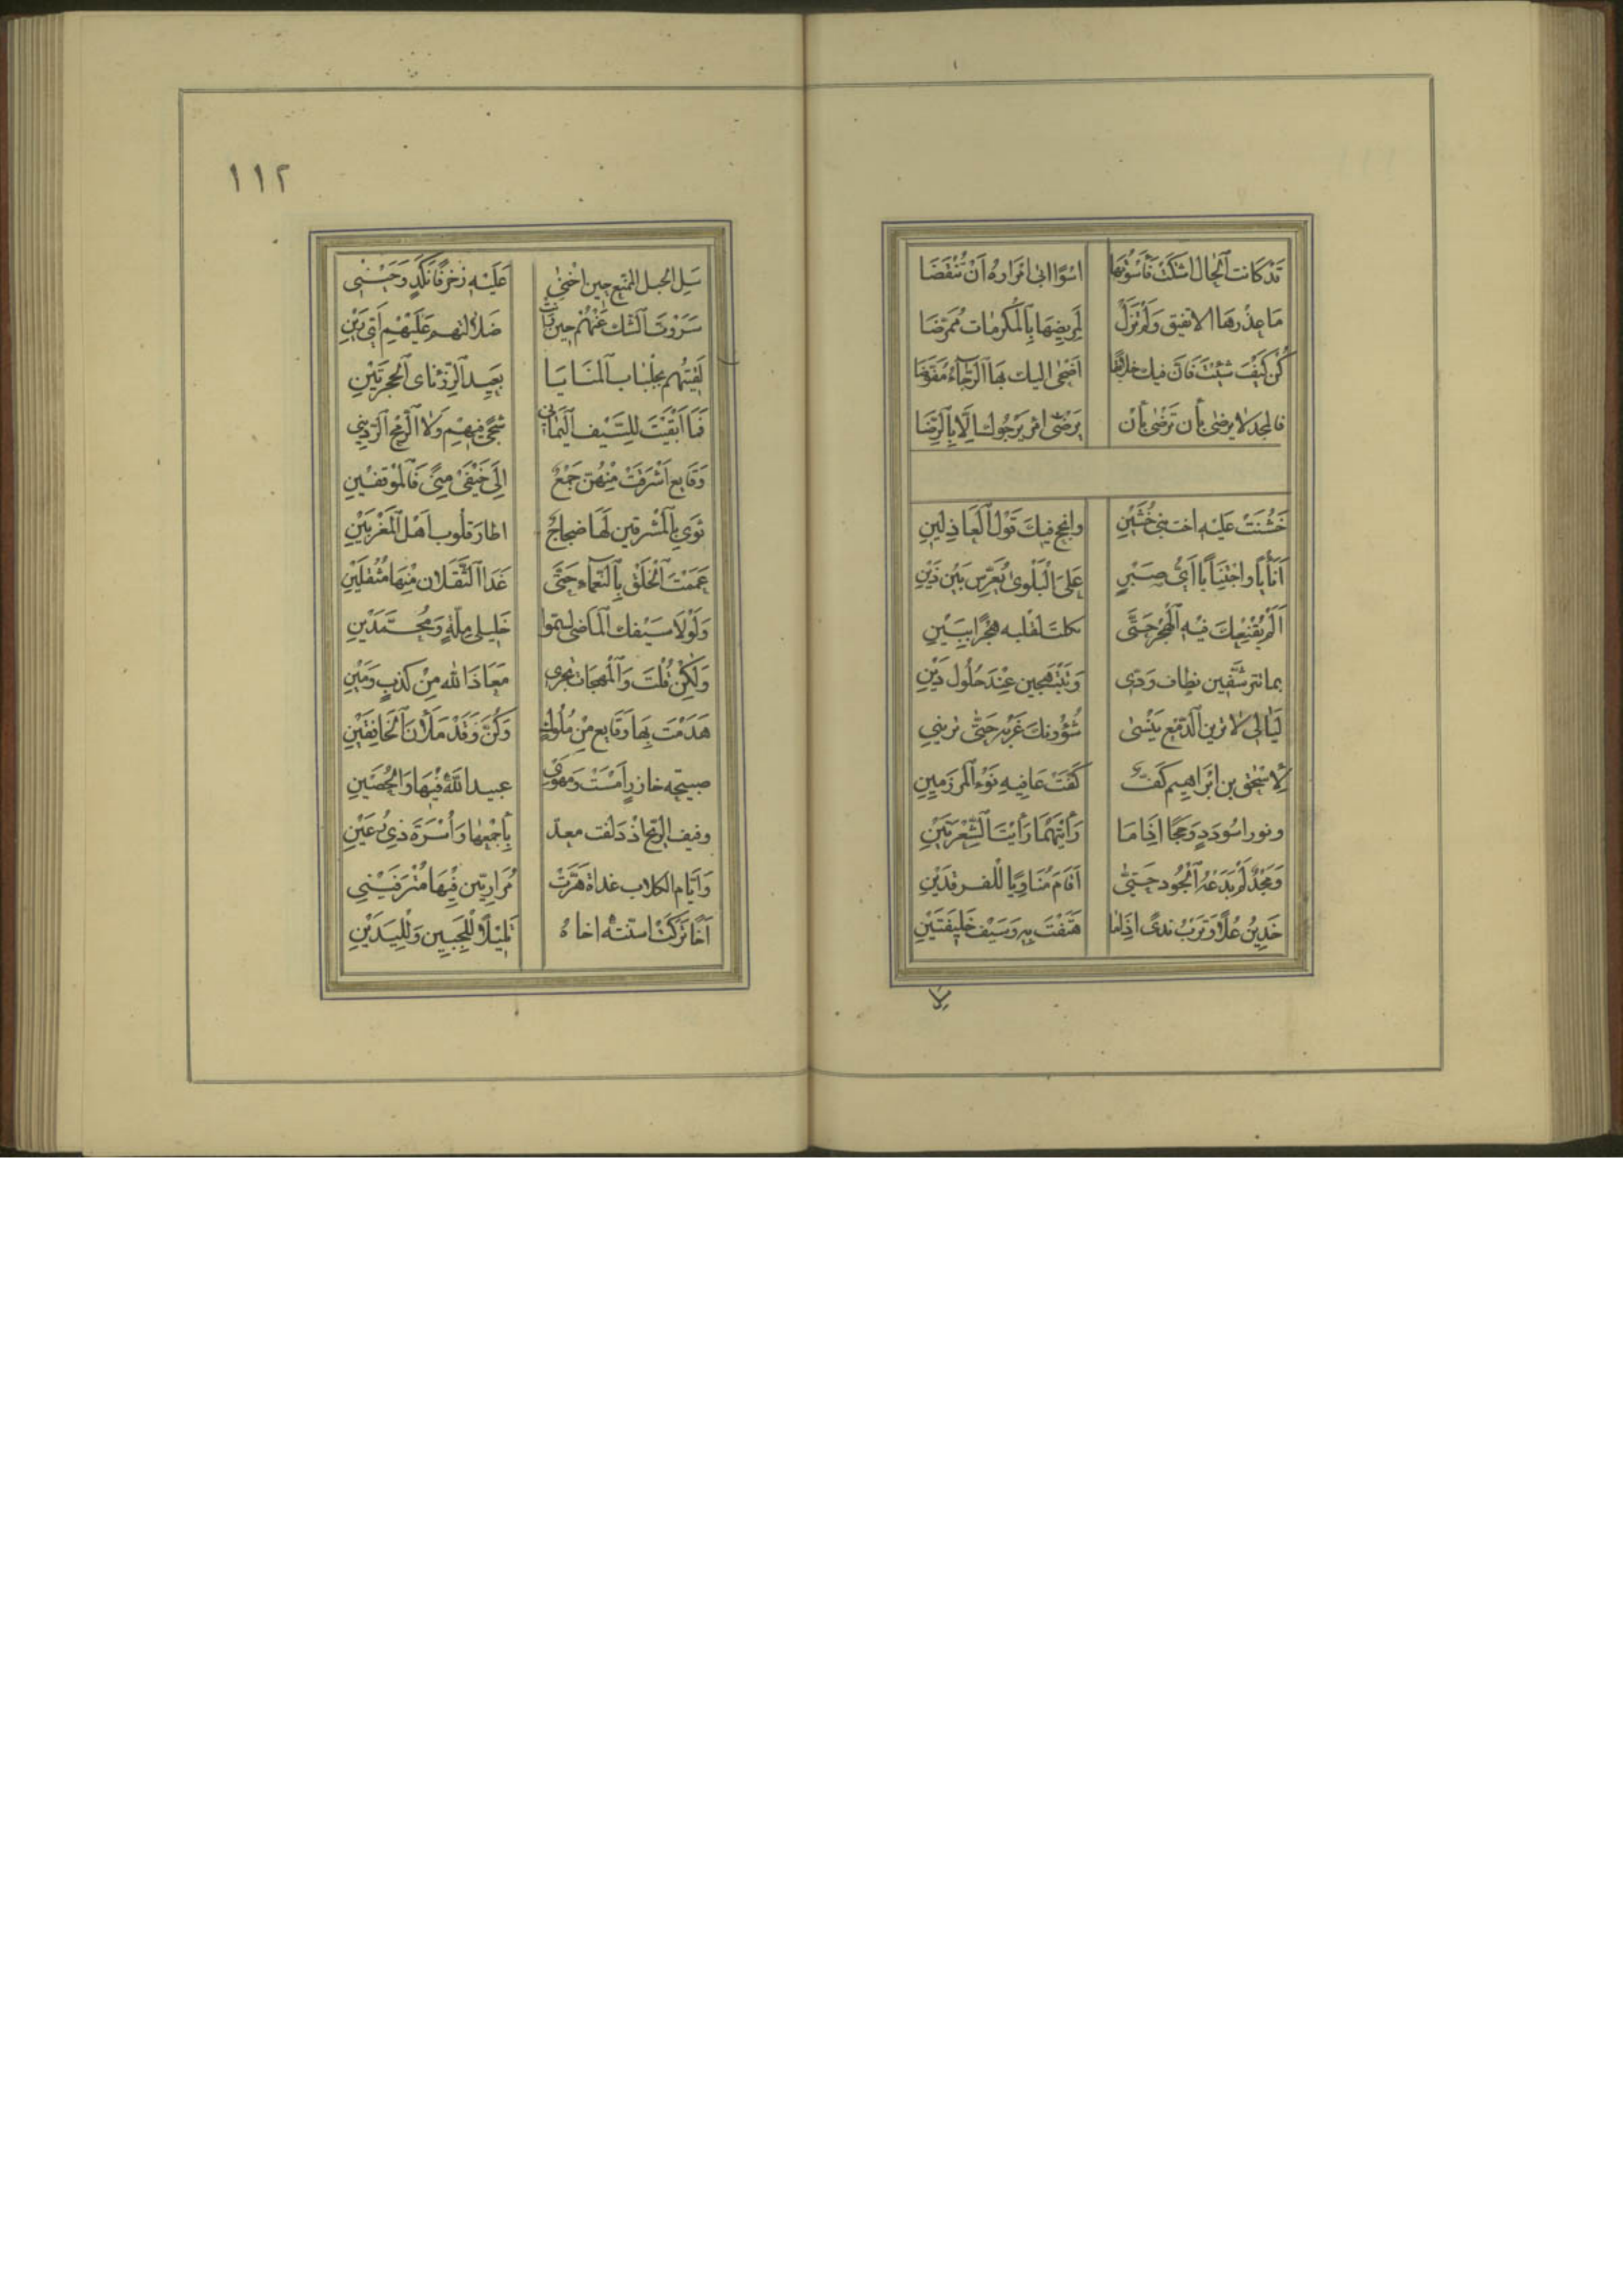 قَدْ كَانت اَلْحال اشتكت فَأَسَوْتَها اسْوًا ابى امْرَاره اَنْ تُنْقَضَا
مَا عِذْرهَا الا تفيق وَلَمْ تَزَلْ لِمَريضِهَا بِالْمَكْرمَات مُمَرّضَا
كُن كَيْفَ شِئْتَ فَان فيك خلائِقًا اَضْحى اليك بهَا الرَّجَاءُ مُفَوّضَا
فالمجد لا يرضى بأن تَرضْى بأنْ يَرْضى امرؤ يَرْجُوك الَّا بِالرِّضَا
خَشُنْتَ عَليْهِ اختَ بنى خُشَيْنِ وانجح فيكَ قَوْل اَلْعَاذِلينِ
اَلَمْ يُقْنِعِكَ فيْهِ اَلْهَجْر حَتَّى بكلت لقلبه هَجْرًا بِبَيْنِ
لَيَالى لا تزين الدَّمْع يَنْسى شُؤُونكَ غَرْبه حَتَّى تريني
لِاسْحٰق بن ابْرَاهيم كَفّ كَفَتْ عَافِيه نَوْء اَلْمرزَمِينِ
ونورا سُودَدٍ وَحِجًا اِذَا مَا رَأَيْتَهُمَا رَأيْتَ اَلشِّعْرَيَيْنِ
وَمَجْدٌ لَمْ يَدَعْهُ اَلْجُود حَتَّى اَقَامَ مُنَاوِيًا لِلْفرقدَيْنِ
خَدينُ عُلًا وَتِرْبُ ندىً اِذَا مَا هَتَفْتَ بِهِ وَسَيْف خَليفَتَيْنِ
لا
١١٢
سَلِ الجبل الممنع حين اخنى عَلَيْهِ زخرفًا نكدٍ وَحَيْنِ
سَرَوْتَ اَلشك عَنْهُمْ حين بَاتَتْ ضَلالتهم عَلَيْهِمْ اَىّ رَيْنِ
لَقيْتَهُم بجلْبَاب اَلْمنَايَا بَعِيد الرِّزّ نَاى اَلْحجرتَيْنِ
فَمَا اَبْقَيْتَ للِسَّيْف اَلْيَمانِي شجًى فيهِمْ وَلا اَلرُّمْح اَلرّديني
وَقَايِع اَشْرَقَتْ مِنْهُنّ جَمْعٌ اِلَى خَيْفَىْ مِنًى فَالْمَوْقفَيْنِ
ثوى بِالْمَشْرقين لَهَا ضجَاجٌ اطار قلوب اَهْل اَلْمَغْربَيْنِ
عَمَمْتَ اَلْخَلْق بِالنَّعْمَاء حَتَّى غَدَا اَلثَّقَلَان مِنْهَا مُثْقَلَيْنِ
وَلَوْلَا سَيْفك اَلْمَاضى لسموا خَليلى ملَّةٍ وَمُحَمَّدَيْنِ
وَلكِنْ قُلْتَ وَالْمُهَجَات تجرى مَعَاذَ الله مِنْ كَذبٍ وَمَيْنِ
هَدَمْتَ بِهَا وَقَايِع مِنْ مُلُوكٍ وَكُنّ وَقَدْ مَلَأْنَ اَلْخَافِقَيْنِ
صبيحة خازرٍ اَمْسَتْ وَمهوى عبيد اللهِ فيْهَا وَالْحُصَيْنِ
وفيف الرّيح اذ دَلفت معدّ بِأَجْمَعِهَا وَأُسْرَةَ ذِي رُعَيْنِ
وَأَيَّام الكلاب غداة هَرَّتْ مُرَاريّين فيْهَا مُتْرَفَيْنِ
اَخًا تَرَكَتْ اسنته اخاهُ تَلِيْلاً لِلْجَبِيْنِ وَلِلْيَدَيْنِ